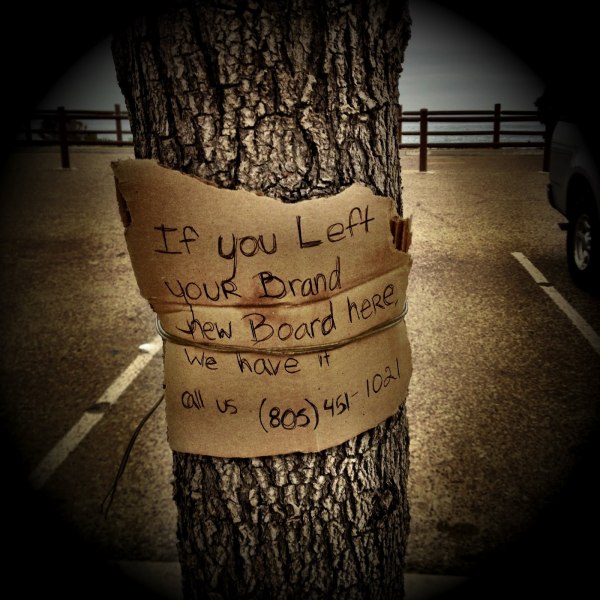 If you Left
your Brand
new Board here,
we have it
call us (805) 451-1021